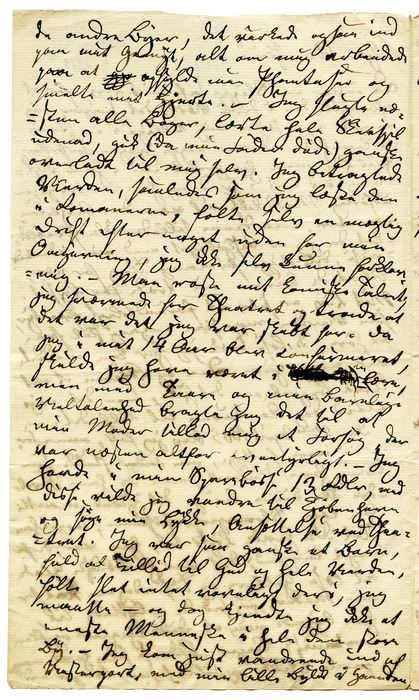 de andre Byer, det virkede ogsaa ind
paa mit Gemyt, alt om mig arbeidede
paa at opfylde min Phantasie og
smelte mit Hjerte. – Jeg slugte næ-
=sten alle Bøger, lærte hele
udenad, gik (da min Fader døde) ganske
overladt til mig selv. Jeg betragtede
Verden, saaledes som jeg læste den
i Romanerne, følte selv en mægtig
Drift efter noget uden for min
Omgivning, jeg ikke selv kunne forklare
mig. – Man roste mit komiske Talent,
jeg sværmede for Theatret og troede at
det var det jeg var skabt for. Da
jeg i mit 14 Aar blev Confirmeret,
skulde jeg have været i Lære,
men med Taare og min barnlige
Veltalenhed bragte jeg det til at
min Moder tillod mig et Forsøg, der
var næsten altfor eventyrligt. – Jeg
havde i min Sparebøsse 13 Rdlr, ved
disse vilde jeg vandre til Kjøbenhavn
og søge min Lykke, Ansættelse ved Thea-
=tret. Jeg var som ganske et Barn,
fuld af Tillid til Gud og hele Verden,
følte slet intet voveligt deri, jeg
maatte – og dog kjendte jeg ikke et
eneste Menneske i hele den store
By. – Jeg kom just vandrende ind af
Vesterport, med min lille Byldt i Haanden,